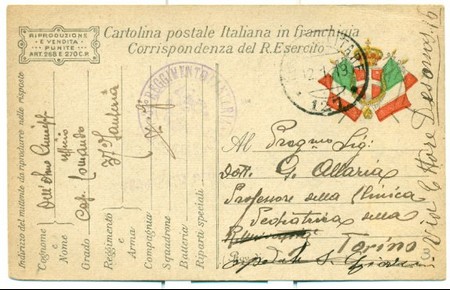 RIPRODUZIONE
E VENDITA
PUNITE
ART. 268 E 270 C.P.
Cartolina postale Italiana in franchigia
Corrispondenza del R. Esercito
REGGIMENTO FANTERIA
Indirizzo del mittente da riprodurre nelle risposte
Cognome Dell'Olmo Giuseppe
e
Nome
Grado Cap. Comando
Reggimento 37° Fanteria
e
Arma
Compagnia
Squadrone
Batteria
Riparti speciali
Al Sig:
Dott. G. Allaria
Professore della Clinica
Pediatrica della
Torino
Ospedale S. Giovanni
Via Ettore Desonnaz 16